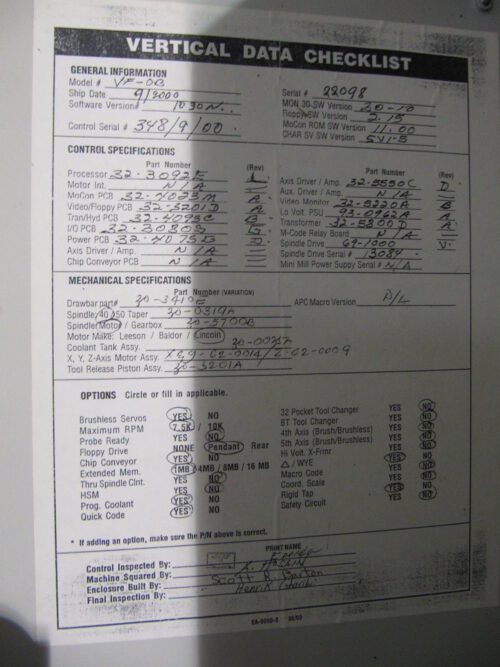 VERTICAL DATA CHECKLIST
GENERAL INFORMATION
Model # VF-OB
Ship Date 9/2000
Software Version# 1030N
Control Serial # 348/9/00
Serial # 22098
MON 30-SW Version 20-10
Floppy SW Version 2.15
MoCon ROM SW Version 11.00
CHAR SV SW Version SV1-5
CONTROL SPECIFICATIONS
Part Number (Rev)
Processor 32-3092E
Motor Int. N/A
MoCon PCB 32-4023M A
Video/Floppy PCB 32-3201D A
Tran/Hyd PCB 32-4095C B
I/O PCB 32-3080S
Power PCB 32-4075G
Axis Driver / Amp. N/A
Chip Conveyor PCB N/A
Part Number (Rev)
Axis Driver / Amp. 32-5550C D
Aux. Driver / Amp. N/A
Video Monitor 32-5220A B
Lo Volt. PSU 93-0962A A
Transformer 32-5800D A
M-Code Relay Board N/A
Spindle Drive 69-1000 V
Spindle Drive Serial # 13084
Mini Mill Power Suppy Serial # N/A
MECHANICAL SPECIFICATIONS
Part Number (VARIATION)
Drawbar part# 30-3410E
Spindle / 40 / 50 Taper 30-0319A
Spindler Motor / Gearbox 30-5700B
Motor Make: Leeson / Baldor / Lincoln
Coolant Tank Assy. 30-0025A
X, Y, Z-Axis Motor Assy. X&Y-C2-0014/Z-C2-0009
Tool Release Piston Assy. 30-3201A
APC Macro Version
OPTIONS Circle or fill in applicable.
Brushless Servos YES NO
Maximum RPM 7.5K / 10K
Probe Ready YES NO
Floppy Drive NONE Pendant Rear
Chip Conveyor YES NO
Extended Mem. 1MB / 4MB / 8MB / 16 MB
Thru Spindle Clnt. YES NO
HSM YES NO
Prog. Coolant YES NO
Quick Code YES NO
32 Pocket Tool Changer YES NO
BT Tool Changer YES NO
4th Axis (Brush/Brushless) YES NO
5th Axis (Brush/Brushless) YES NO
Hi Volt. X-Frmr YES NO
△ / WYE
Macro Code YES NO
Coord. Scale YES NO
Rigid Tap YES NO
Safety Circuit YES NO
* If adding an option, make sure the P/N above is correct.
PRINT NAME
Control Inspected By:
Machine Squared By:
Enclosure Built By: Scott R. Barton
Final Inspection By: Henrik